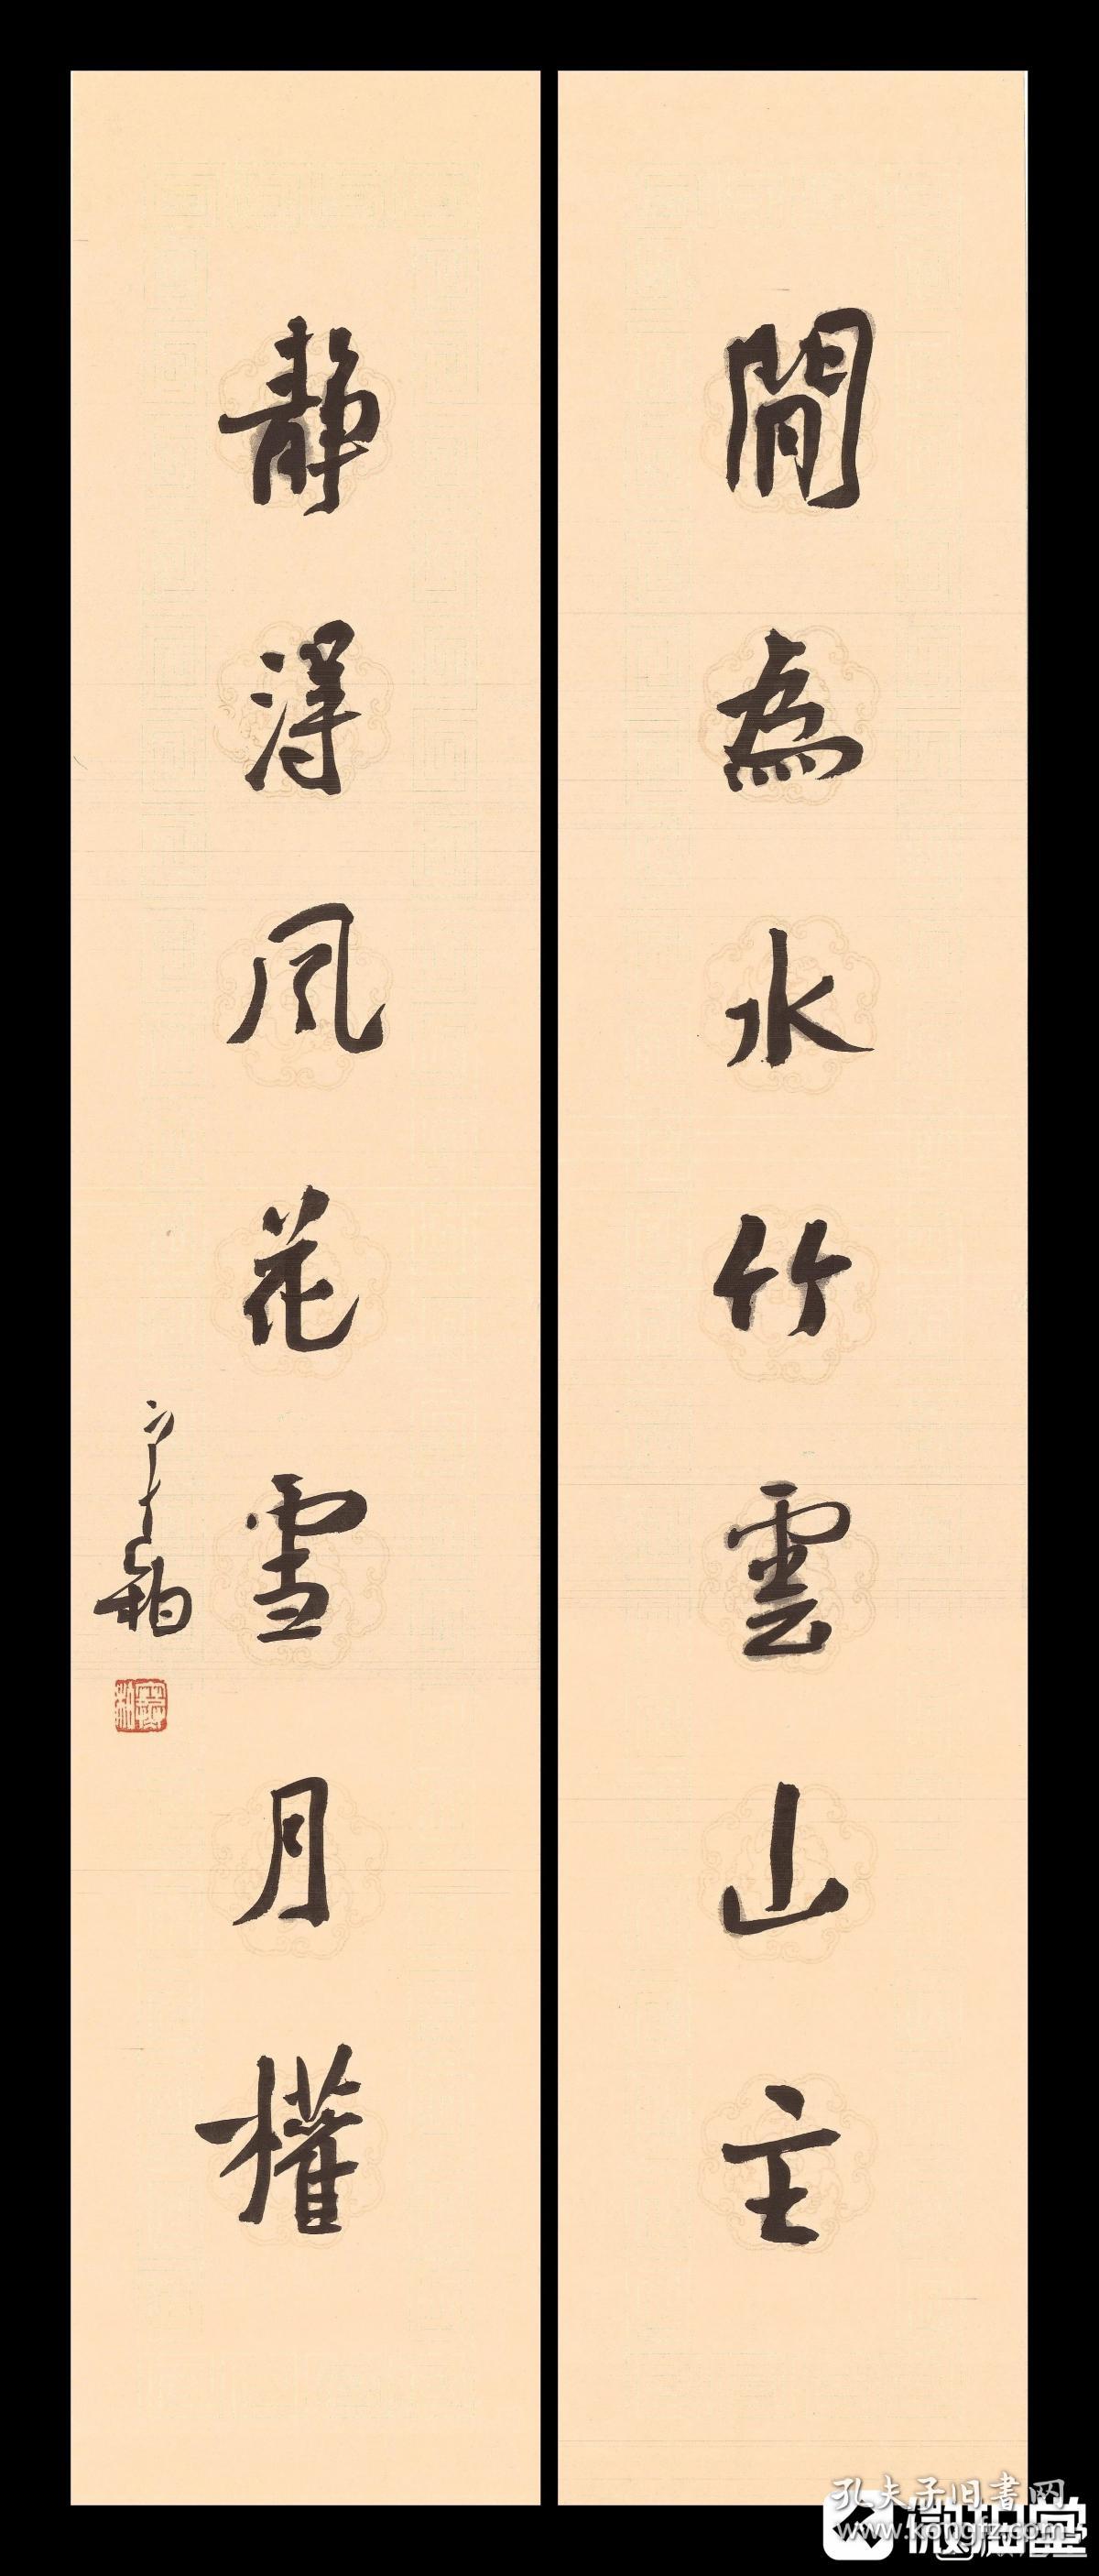 閒為水竹雲山主
静得風花雪月權
孔夫子旧書网
www.kongfz.com